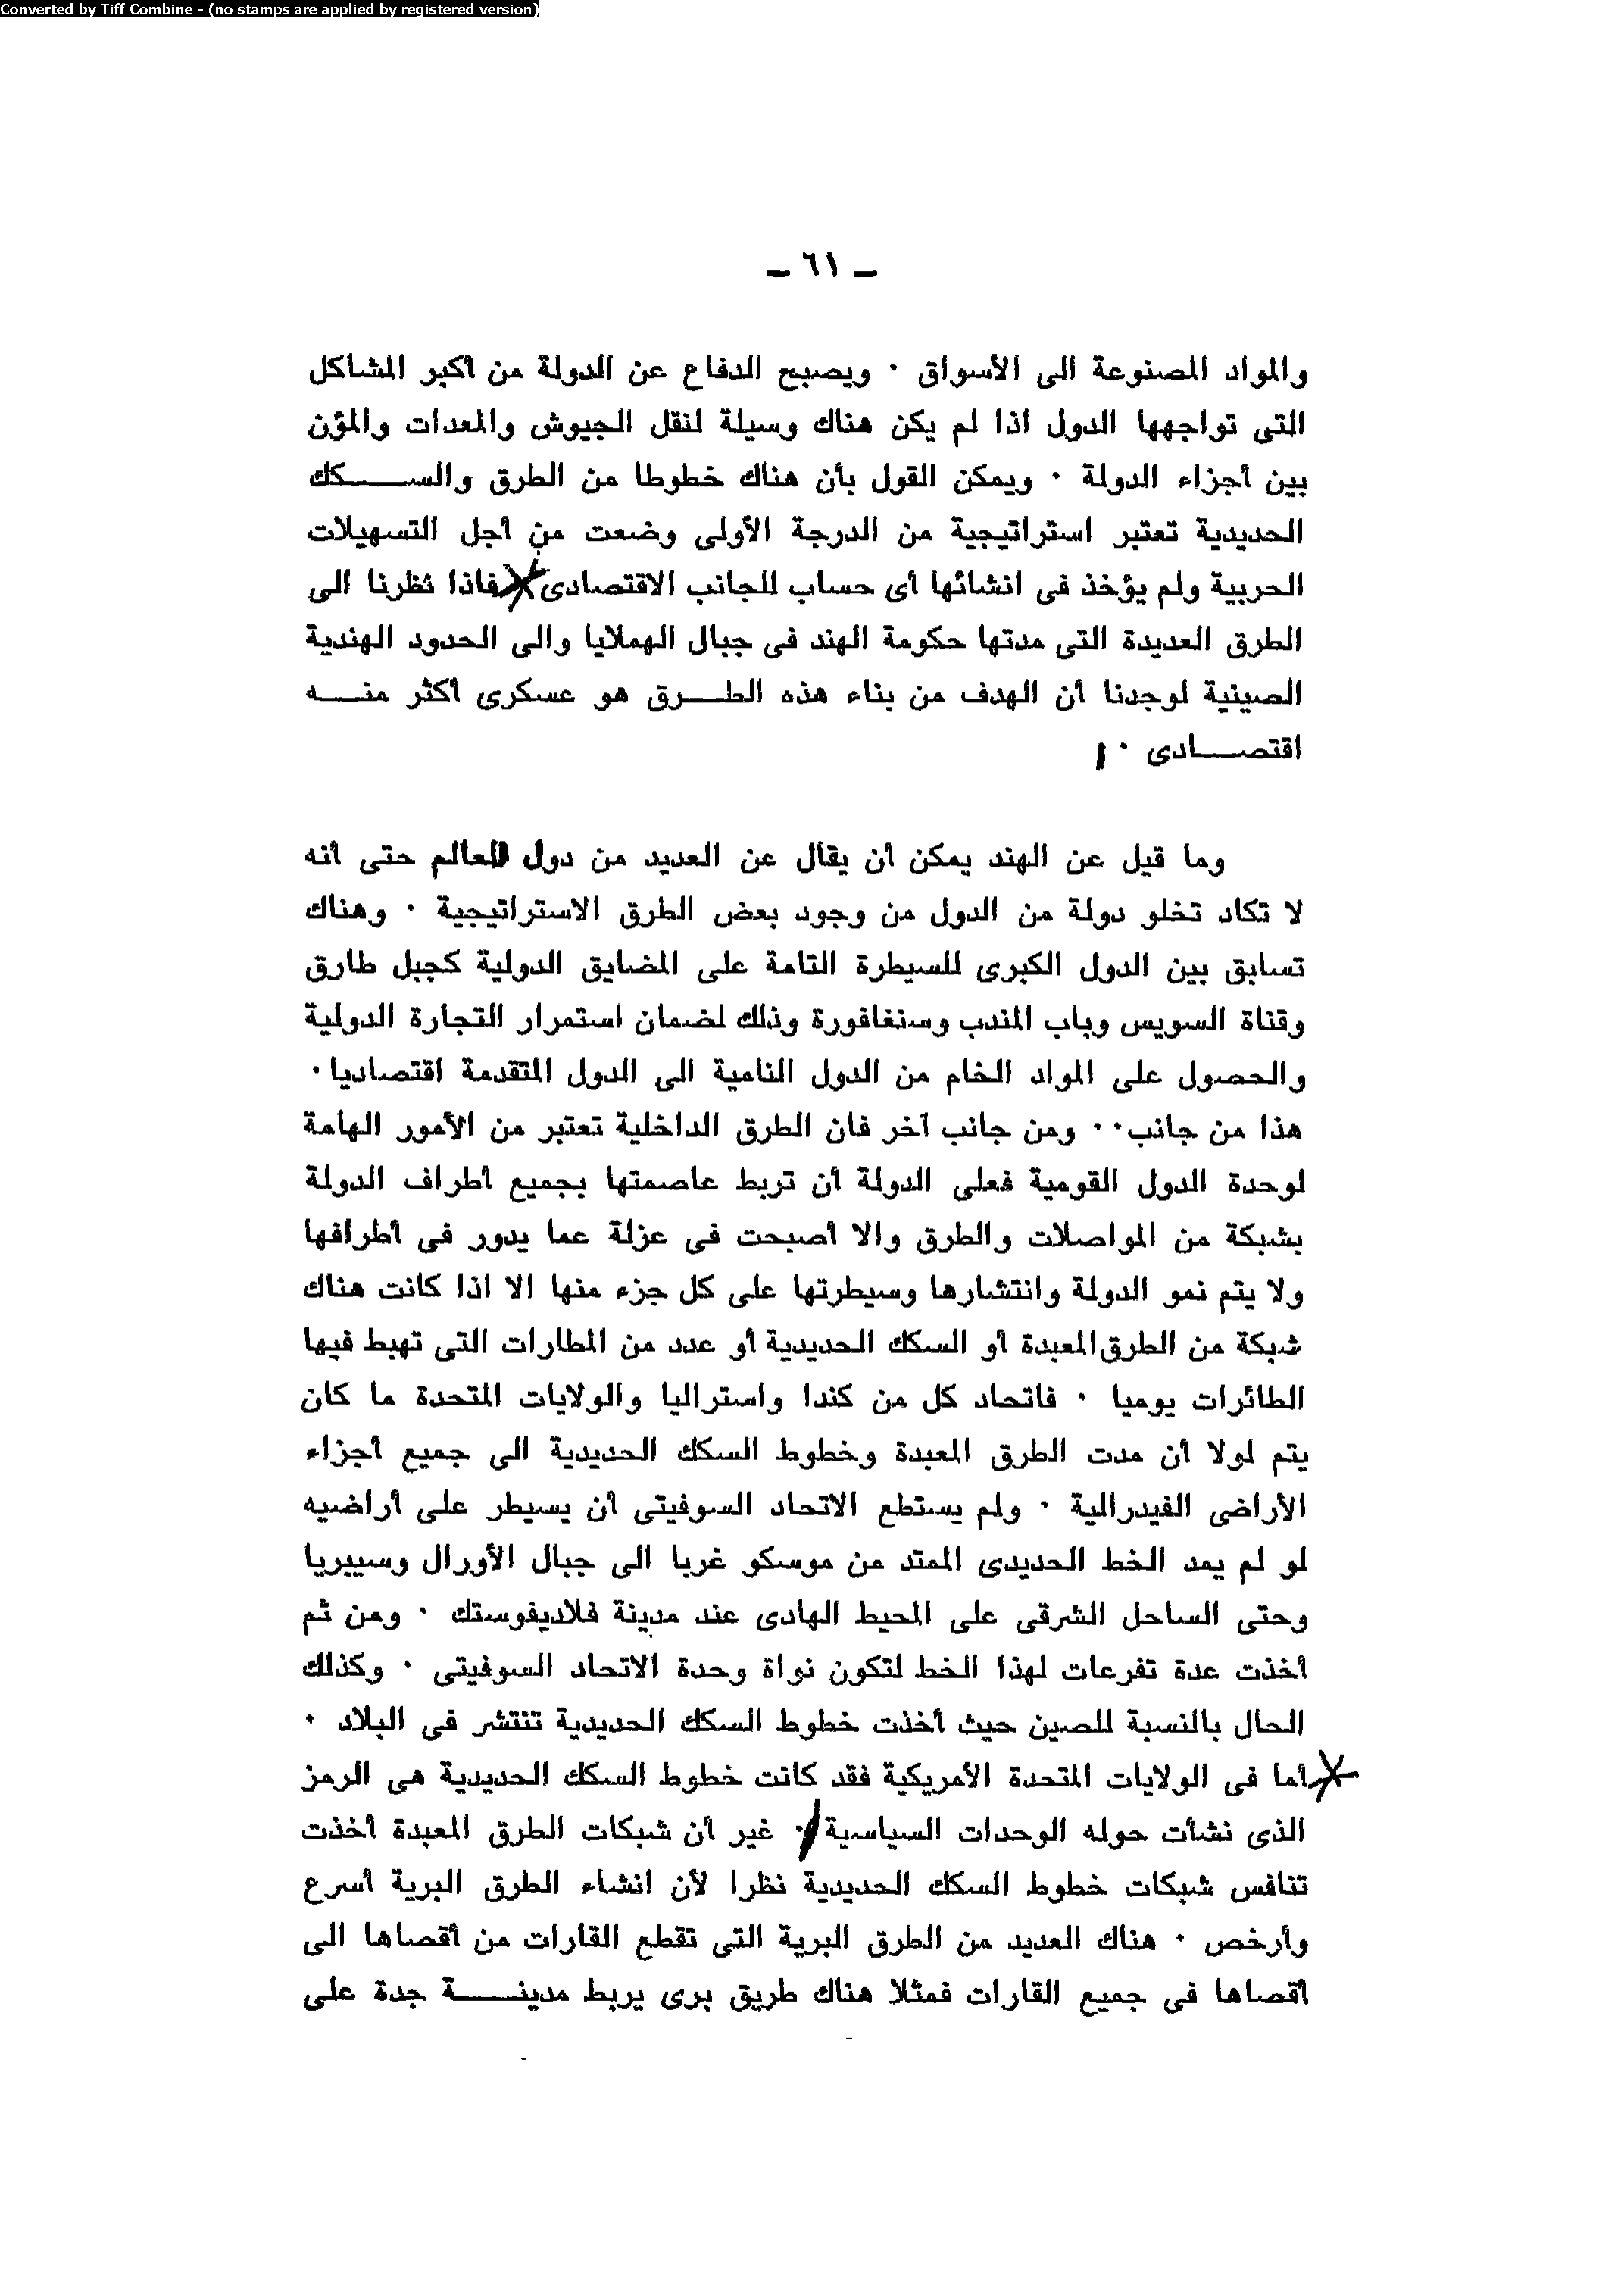 Converted by Tiff Combine - (no stamps are applied by registered version)
ـ ٦١ ـ
والمواد المصنوعة الى الأسواق ٠ ويصبح الدفاع عن الدولة من أكبر المشاكل
التى تواجهها الدول اذا لم يكن هناك وسيلة لنقل الجيوش والمعدات والمؤن
بين أجزاء الدولة ٠ ويمكن القول بأن هناك خطوطا من الطرق والســـكك
الحديدية تعتبر استراتيجية من الدرجة الأولى وضعت من أجل التسهيلات
الحربية ولم يؤخذ فى انشائها أى حساب للجانب الاقتصادى فاذا نظرنا الى
الطرق العديدة التى مدتها حكومة الهند فى جبال الهملايا والى الحدود الهندية
الصينية لوجدنا أن الهدف من بناء هذه الطـــرق هو عسكرى أكثر منـــه
اقتصـــادى ٠
وما قيل عن الهند يمكن أن يقال عن العديد من دول العالم حتى أنه
لا تكاد تخلو دولة من الدول من وجود بعض الطرق الاستراتيجية ٠ وهناك
تسابق بين الدول الكبرى للسيطرة التامة على المضايق الدولية كجبل طارق
وقناة السويس وباب المندب وسنغافورة وذلك لضمان استمرار التجارة الدولية
والحصول على المواد الخام من الدول النامية الى الدول المتقدمة اقتصاديا ٠
هذا من جانب ٠٠ ومن جانب آخر فان الطرق الداخلية تعتبر من الأمور الهامة
لوحدة الدول القومية فعلى الدولة أن تربط عاصمتها بجميع أطراف الدولة
بشبكة من المواصلات والطرق والا أصبحت فى عزلة عما يدور فى أطرافها
ولا يتم نمو الدولة وانتشارها وسيطرتها على كل جزء منها الا اذا كانت هناك
شبكة من الطرق المعبدة أو السكك الحديدية أو عدد من المطارات التى تهبط فيها
الطائرات يوميا ٠ فاتحاد كل من كندا واستراليا والولايات المتحدة ما كان
يتم لولا أن مدت الطرق المعبدة وخطوط السكك الحديدية الى جميع أجزاء
الأراضى الفيدرالية ٠ ولم يستطع الاتحاد السوفيتى أن يسيطر على أراضيه
لو لم يمد الخط الحديدى الممتد من موسكو غربا الى جبال الأورال وسيبريا
وحتى الساحل الشرقى على المحيط الهادى عند مدينة فلاديفوستك ٠ ومن ثم
أخذت عدة تفرعات لهذا الخط لتكون نواة وحدة الاتحاد السوفيتى ٠ وكذلك
الحال بالنسبة للصين حيث أخذت خطوط السكك الحديدية تنتشر فى البلاد ٠
أما فى الولايات المتحدة الأمريكية فقد كانت خطوط السكك الحديدية هى الرمز
الذى نشأت حوله الوحدات السياسية ٠ غير أن شبكات الطرق المعبدة أخذت
تنافس شبكات خطوط السكك الحديدية نظرا لأن انشاء الطرق البرية أسرع
وأرخص ٠ هناك العديد من الطرق البرية التى تقطع القارات من أقصاها الى
أقصاها فى جميع القارات فمثلا هناك طريق برى يربط مدينـــة جدة على